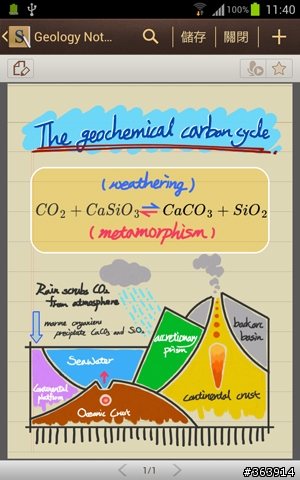 100% 11:40
S Geology Not... 儲存 關閉
The geochemical carbon cycle
(weathering)
CO₂ + CaSiO₃ ⇌ CaCO₃ + SiO₂
(metamorphism)
Rain scrubs CO₂
from atmosphere
marine organisms
precipitate CaCO₃ and SiO₂
Seawater
continental
platform
Oceanic Crust
accretionary
prism
backarc
basin
continental crust
1/1
#363914